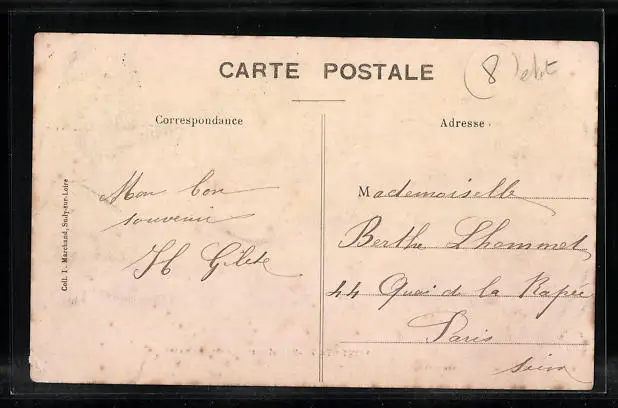 CARTE POSTALE
8
Correspondance
Adresse
Mon bon
souvenir
Mademoiselle
Berthe Lhommet
44 Quai de la Rapée
Paris
Seine
Coll. L. Marchand, Sully-sur-Loire